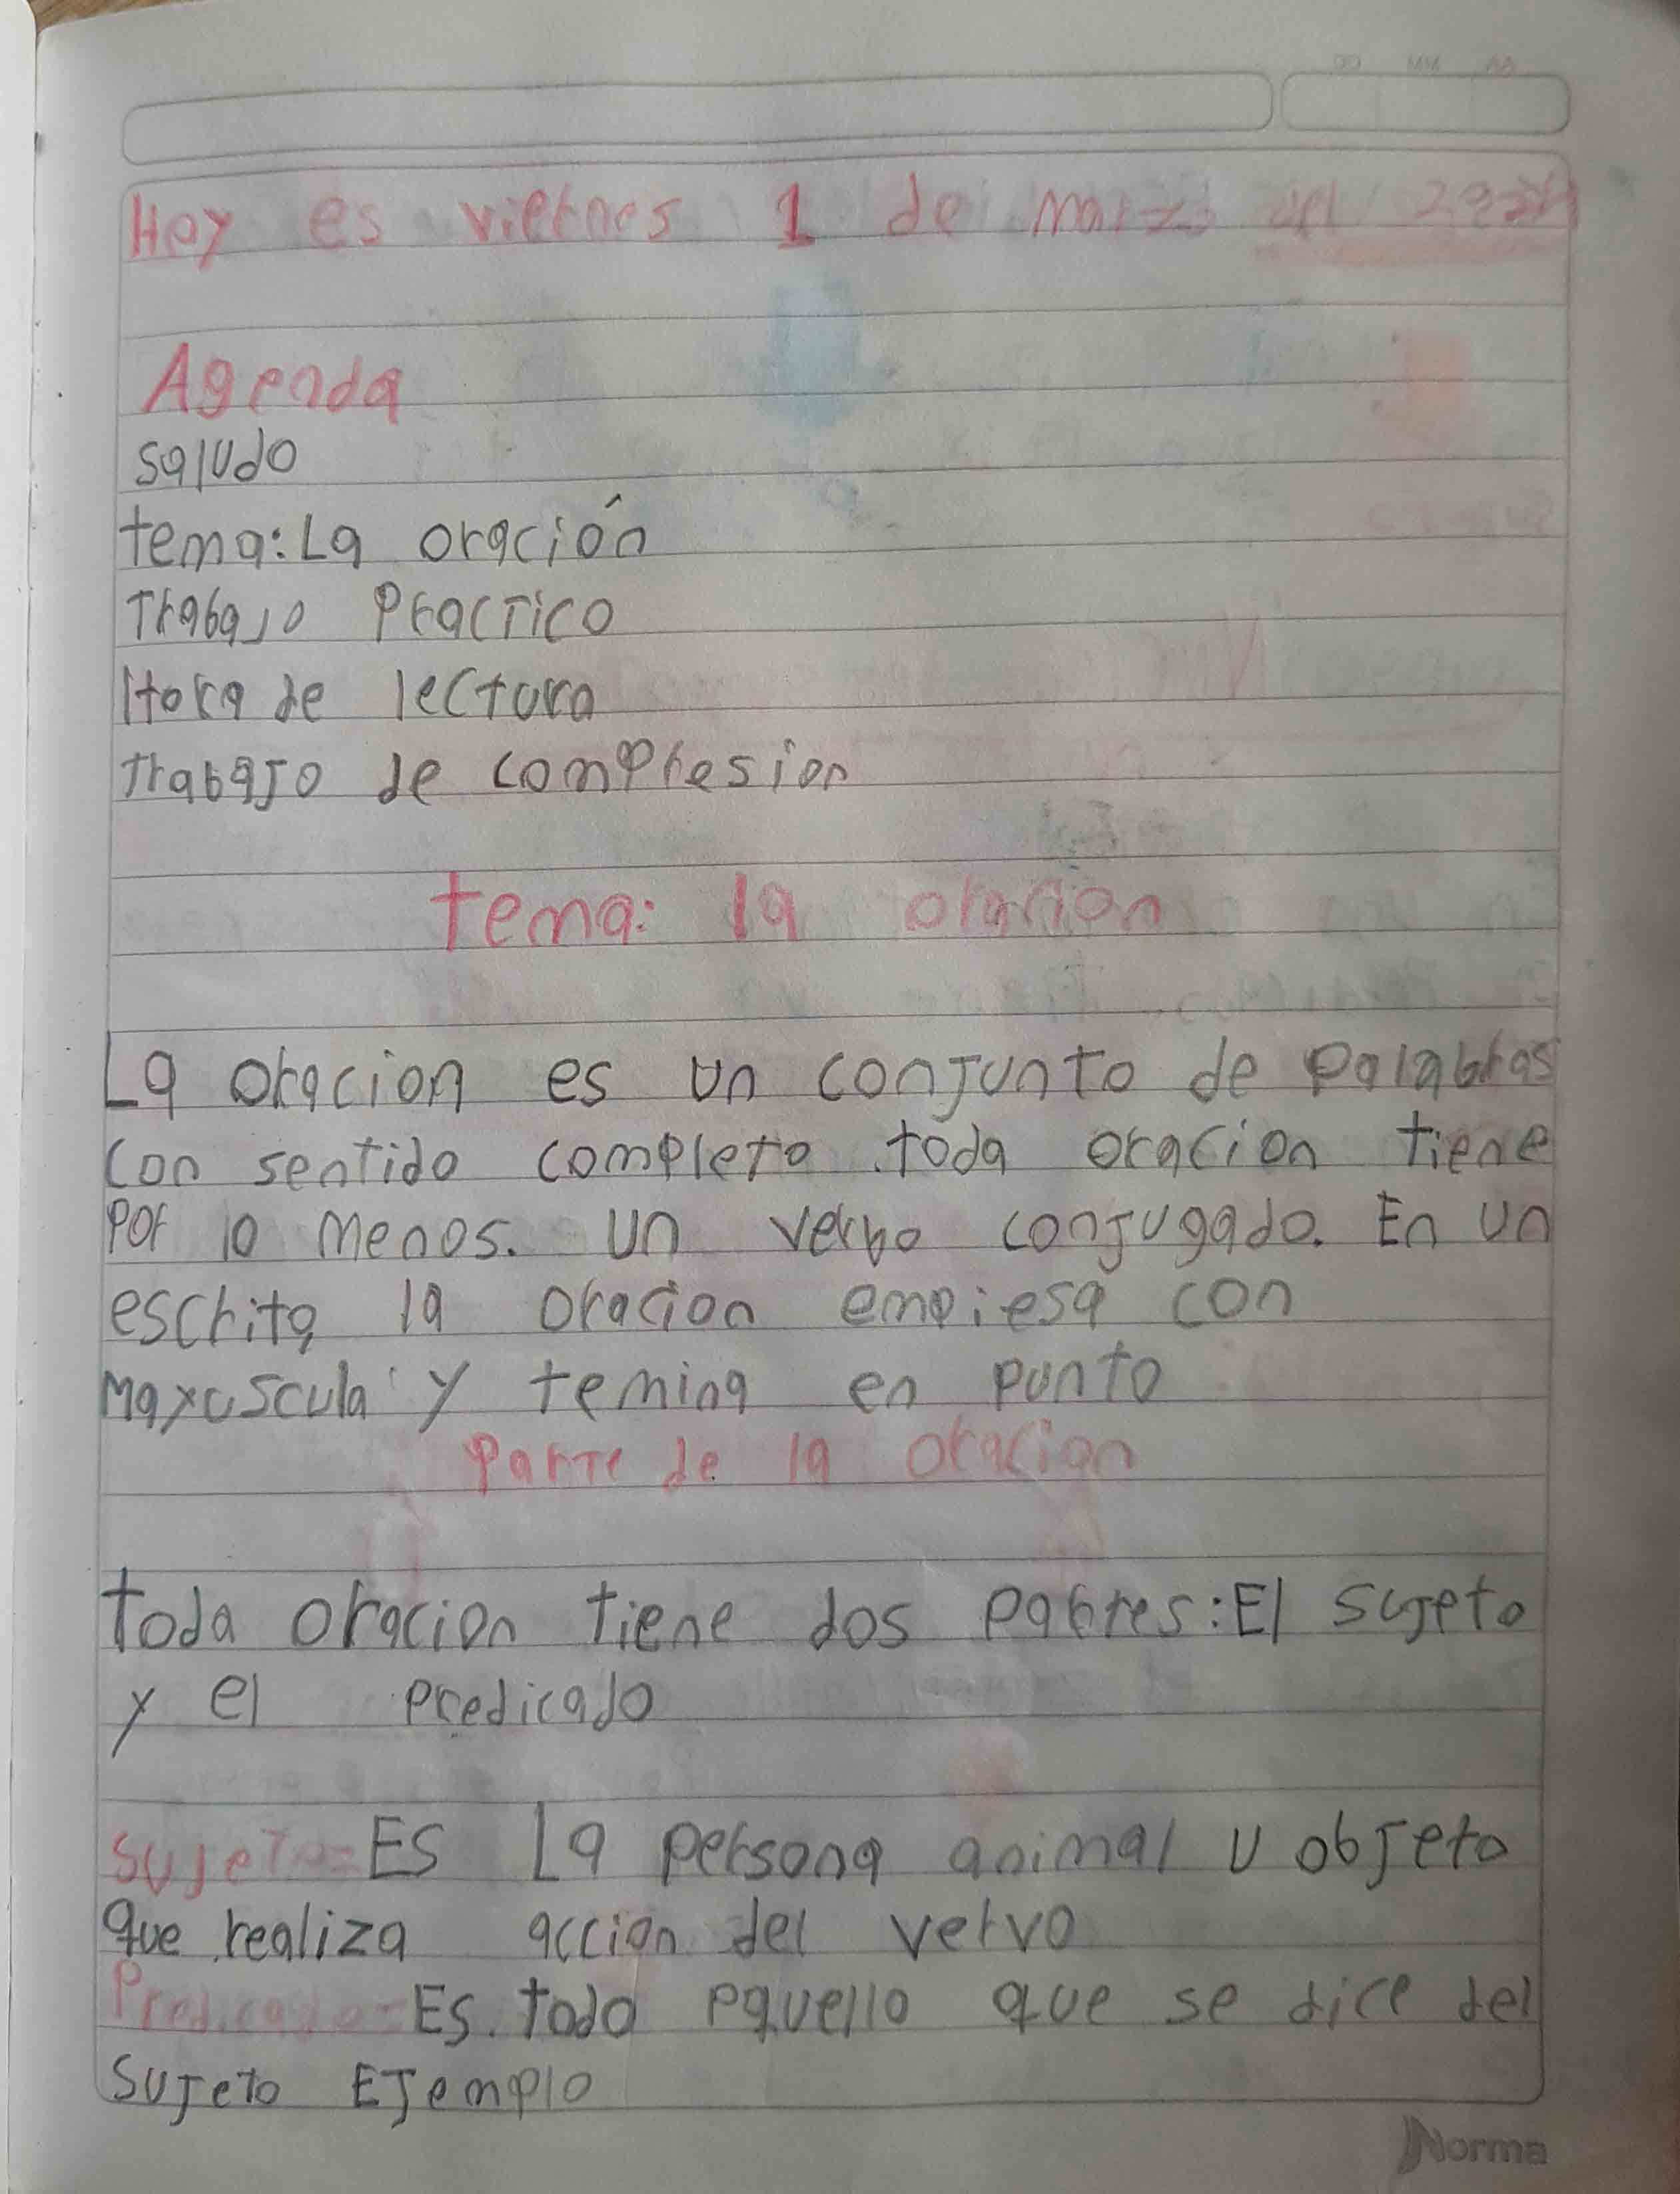 Hoy es viernes 1 de marzo del 2024
Agenda
saludo
tema: La oración
Trabajo Practico
Hora de lectura
trabajo de compresion
tema: la oracion
La oracion es un conjunto de palabras
con sentido completo .toda oracion tiene
por lo menos. un verbo conjugado. En un
escrita la oracion empiesa con
Mayuscula y temina en punto
Parte de la oracion
toda oracion tiene dos partres: El sujeto
y el predicado
Sujeto= ES La persona animal u objeto
que realiza accion del vervo
Predicado= Es. todo aquello que se dice del
sujeto Ejemplo
Norma